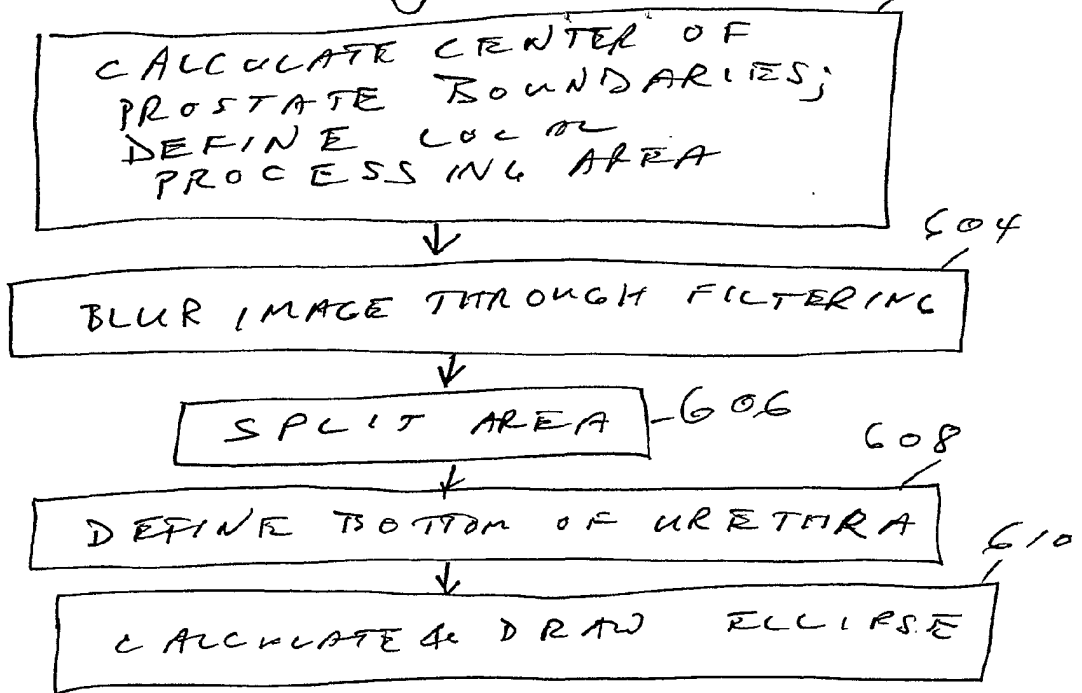 CALCULATE CENTER OF
PROSTATE BOUNDARIES;
DEFINE LOCAL
PROCESSING AREA
604
BLUR IMAGE THROUGH FILTERING
SPLIT AREA 606
608
DEFINE BOTTOM OF URETHRA
610
CALCULATE & DRAW ELLIPSE